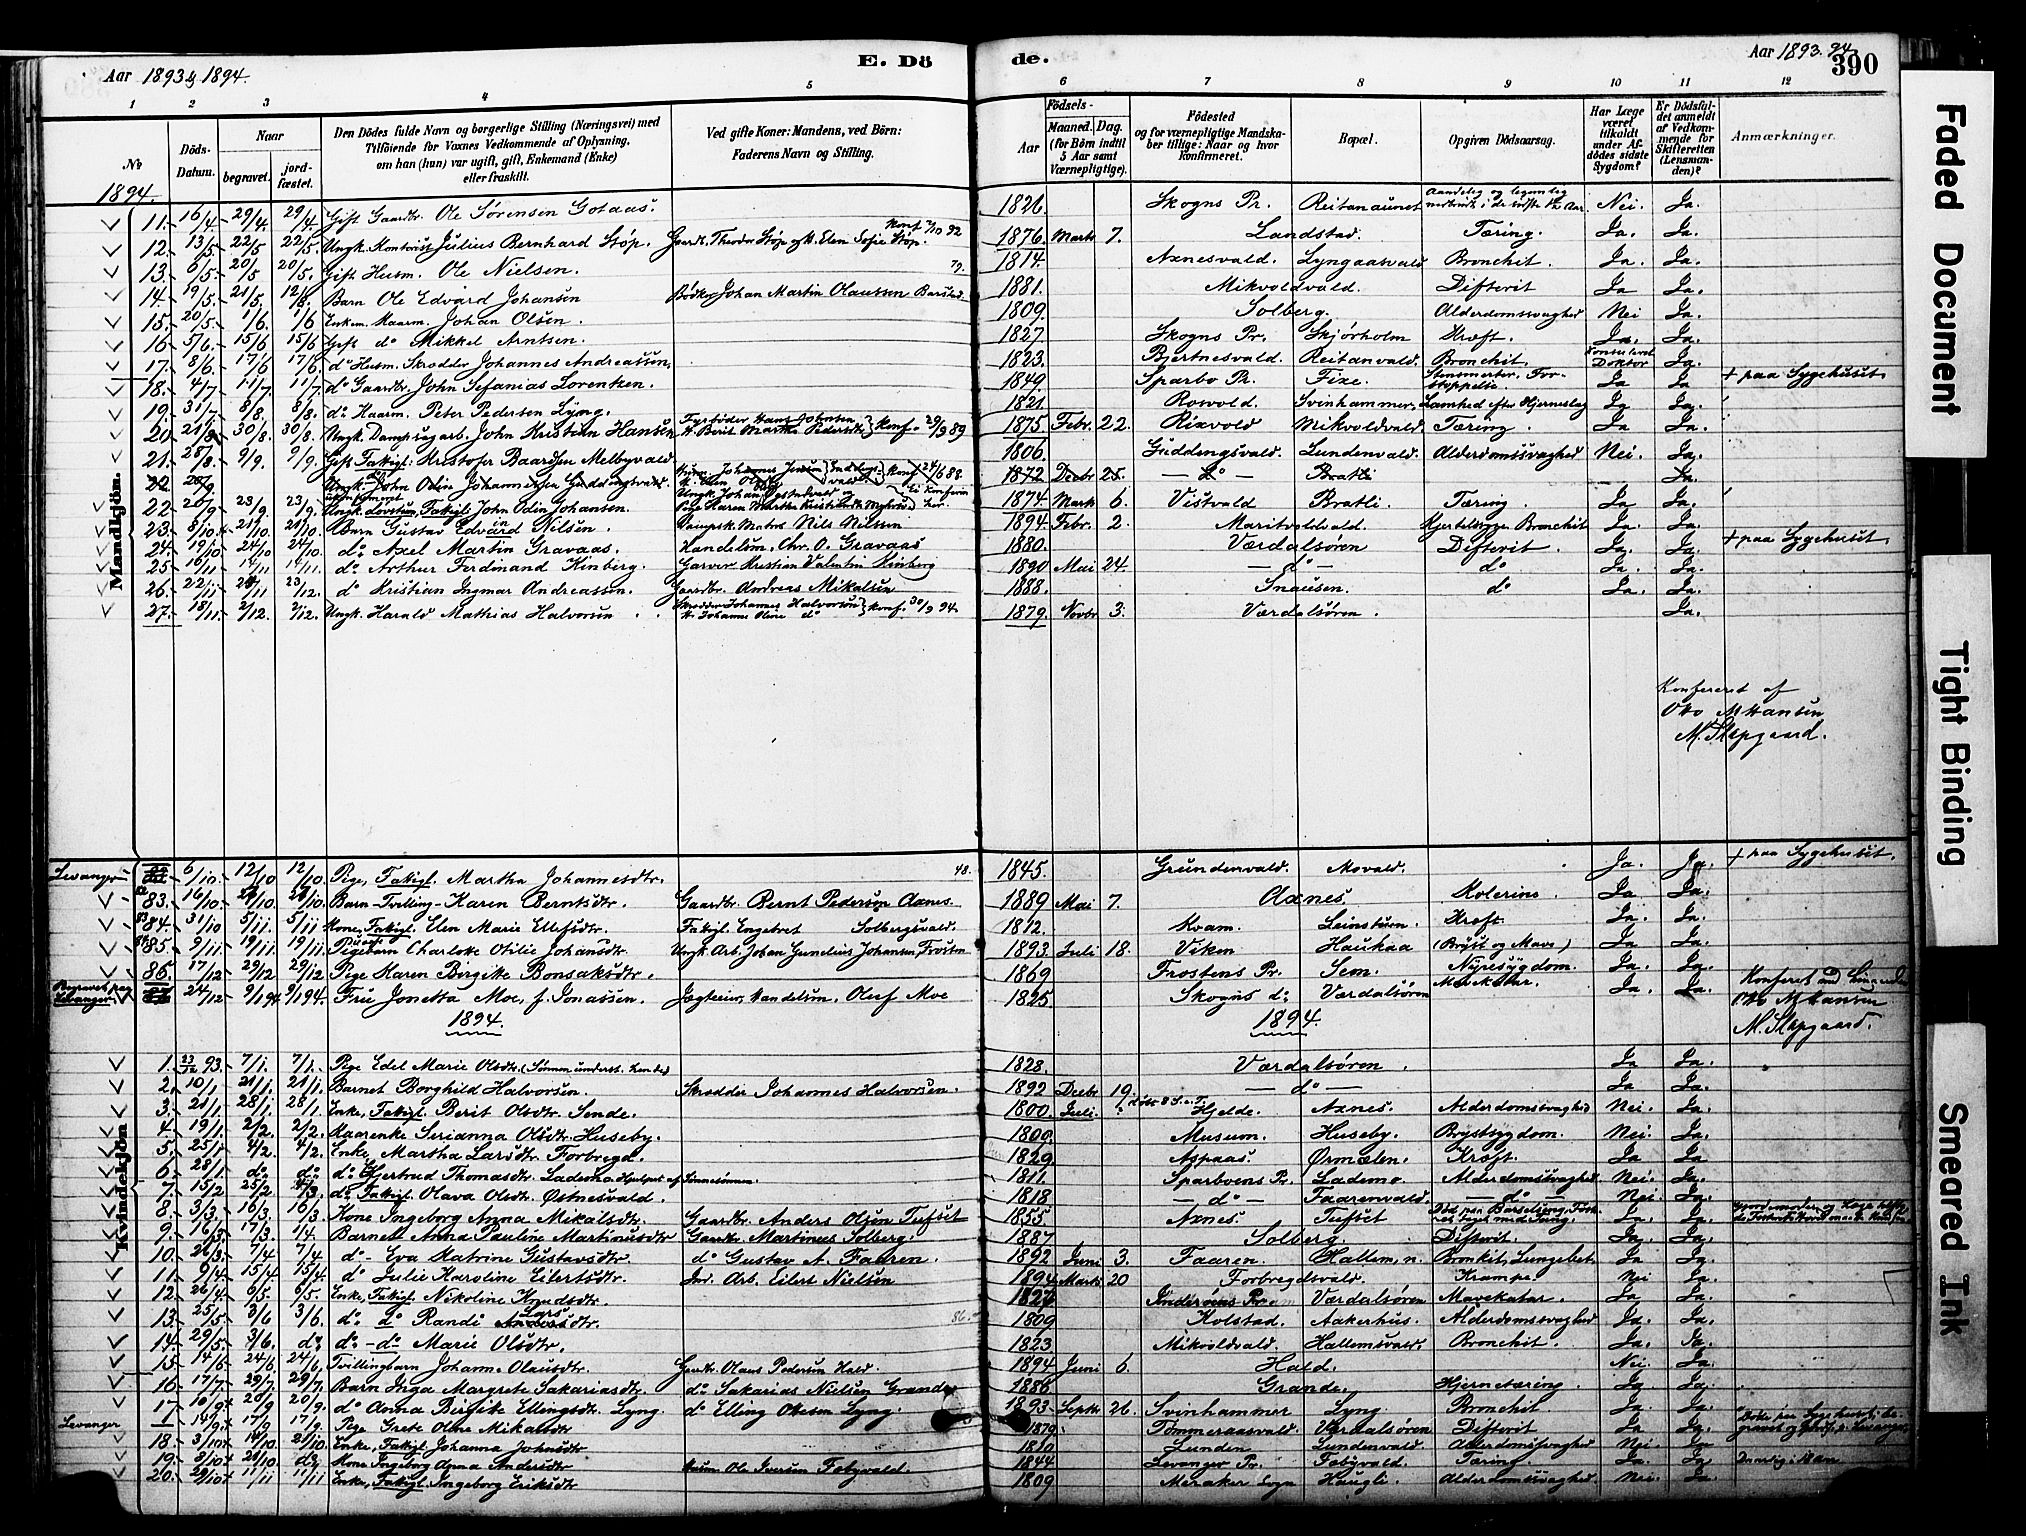 Aar 1893 & 1894.
E. Dö
de.
Aar 1893. 94.
390
1 2 3 4 5 6 7 8 9 10 11 12
No
Döds-Datum.
Naar
begravet.
jord-fæstet.
Den Dödes fulde Navn og borgerlige Stilling (Næringsvei) med
Tilföiende for Voxnes Vedkommende af Oplysning,
om han (hun) var ugift, gift, Enkemand (Enke)
eller fraskilt.
Ved gifte Koner: Mandens, ved Börn:
Faderens Navn og Stilling.
Födsels-
Aar
Maaned. Dag.
(for Börn indtil
5 Aar samt
Værnepligtige).
Födested
og for værnepligtige Mandska-
ber tillige: Naar og hvor
konfirmeret.
Bopæl.
Opgiven Dödsaarsag.
Har Læge
været
tilkaldt
under Af-
dödes sidste
Sygdom?
Er Dödsfal-
det anmeldt
af Vedkom-
mende for
Skifteretten
(Lensman-
den)?
Anmærkninger.
1894.
Mandkjön.
11. 16/4. 29/4. 29/4. Gift Gaardbr. Ole Sørensen Gotaas. 1826. Skogns Pr. Reitanaunet Nei. Ja.
12. 13/5. 22/5 22/5. Ungk. Kontorist Julius Bernhard Støp. Gaardb. Theodor Støp og H. Elen Sofie Støp. 1876. Marts 7. Landstad. Tæring. Ja. Ja.
13. 6/5. 20/5 20/5. Gift Husm. Ole Nielsen. 79. 1814. Axnesvald. Lyngaasvald Bronchit. Ja. Ja.
14. 19/5. 21/5. 12/8. Barn Ole Edvard Johansen Bødker Johan Martin Olaussen Barstad. 1881. Mikvoldvald. Difterit Ja Ja.
15. 20/5. 1/6. 1/6 Enkem. Kaarm. Johan Olsen. 1809. Solberg. Alderdomssvaghed Nei Ja.
16. 5/6. 15/6 15/6 Gift do Mikkel Arntsen. 1827. Skogns Pr. Skjørholm Kræft. Ja. Ja.
17. 8/6. 17/6 17/6 do Husm. Skrædder Johannes Andreassen. 1823. Bjertnesvald. Reitanvald. Bronchit. Konsuleret Doktor Ja.
18. 4/7. 11/7. 11/7. do Gaardbr. John Sefanias Lorentzen. 1849. Sparbo Pr. Fixe. Stensmerter, Forstoppelse. Ja Ja + paa Sygehuset.
19. 31/7 8/8. 8/8. do Kaarm. Peter Pedersen Lyng. 1821 Rosvold. Svinhammer. Lamhed efter Hjerneslag Ja Ja.
20. 21/8 30/8. 30/8. Ungk. Dampsagarb. John Kristian Hansen Fyrbøder Hans Johnsen H. Berit Martha Pedersdtr } konf. 29/9 89 1875 Febr. 22. Rixvold Mikvoldvald. Tæring. Ja Ja
21. 28/8. 9/9. 9/9. Gift Fattigl. Kristofer Baardsen Melbyvald 1806. Guddingsvald. Lundenvald. Alderdomssvaghed Nei. Ja.
22 20/9 Ungk. John Odin Johannessen Guddingsvald 1872 Decbr 25. — do — Bratli Ja.
22. 20/9. 23/9. 23/9. Ungk. Lovstun, Fattigl. John Odin Johansen. 1874 Marts 6. Vistvald Bratli. Tæring. Ja Ja
23. 8/10. 21/10 21/10. Barn Gustav Edvard Nilsen. Dampsk. Matros Nils Nilssen 1894. Febr. 2. Maritvoldvald. Kjertelsyge Bronchit Ja. Ja.
24. 19/10 24/10 24/10. do Axel Martin Gravaas. Handelsm. Chr. O. Gravaas 1880. Værdalsøren Difterit. Ja. Ja. + paa Sygehuset.
25. 10/11 14/11 14/11. do Arthur Ferdinand Kinberg. Garver Kristian Valentin Kinberg 1890 Mai 24. — do — do Ja. Ja.
26. 22/11 28/11 23/12. do Kristian Ingmar Andreassen. Gaardbr. Andreas Mikalsen 1888. Snausen. do Ja. Ja.
27. 18/11. 2/12. 2/12. Ungk. Harald Mathias Halvorsen. Skrædder Johannes Halvorsen H. Johanna Oline do } konf. 30/9 94. 1879. Novbr 3. Værdalsøren. Ja.
Konfereret af
Otto M Hansen
M. Slapgaard.
Kvindekjön
Levanger 6/10. 12/10 12/10. Pige, Fattigl. Martha Johannesdtr. 48. 1845. Grundenvald. Movald. Ja. Ja. + paa Sygehuset.
83. 16/10 24/10 24/10. Barn-Tvilling-Karen Berntsdtr. Gaardbr. Bernt Pederson Axnes. 1889 Mai 7. Axnes. Kolerine. Ja Ja.
84. 31/10 5/11. 5/11 Kone, Fattigl. Elen Marie Ellefsdtr. Fattigl. Engebret Solbergsvald. 1812. Kvam. Leinstuen. Kræft. Ja. Ja.
85. 9/11. 19/11. 19/11. Pigebarn Charlotte Otilie Johansdtr. Ungk. Arb. Johan Gunelius Johansen, Frosten 1893. Juli 18. Viken Haukaa (Bryst og Mave) Ja Ja.
86. 17/12 29/12 29/12 Pige Karen Birgitte Bonsaksdtr. 1869 Frostens Pr. Sem. Nyresygdom. Ja. Ja.
Begravet paa Levanger 24/12 9/194 9/194. Fru Jonetta Moe, f. Jonassen. Jægteier, Handelsm. Oluf Moe 1825 Skogns do. Værdalsøren Mavekatar. Ja. Ja.
Otto M Hansen
M. Slapgaard.
1894. 1894.
1. 23/12 93. 7/1. 7/1. Pige Edel Marie Olsdtr. (Sønnen underst. hende) 1828. Værdalsøren. Ja Ja.
2. 10/1 21/1. 21/1. Barnet Borghild Halvorsen. Skrædder Johannes Halvorsen. 1892 Decbr 19. — do — Ja Ja.
3. 21/1. 28/1. 28/1. Enke, Fattigl. Berit Olsdtr. Sende. 1800. Juli Hjelde. Axnes. Alderdomssvaghed Nei. Ja.
4. 19/1. 2/2. 2/2. Kaarenke Serianna Olsdtr. Huseby. 1809. Museum. Huseby. Brystsygdom. Nei. Ja.
5. 25/1 4/2. 4/2. Enke Martha Larsdtr. Forbregd. 1829. Aspaas. Ørmelen. Kræft. Ja Ja.
6. 28/1 do. do. do Gjertrud Thomasdtr. Lademo. Hjulpet af Sønnesønnen. 1811. Sparboens Pr. Lademo. Alderdomssvaghed Nei. Ja.
7. 15/2 25/2 4/3. do Fattigl. Olava Olsdtr. Østnesvald. 1818 — do — Faarenvald. — do — Nei Ja.
8. 3/3 16/3 16/3. Kone Ingeborg Anna Mikalsdtr. Gaardbr. Anders Olsen Tufset 1855 Axnes. Tufset Ja. Ja.
9. 16/3 17/3. 1/4. Barnet Anna Pauline Martinusdtr Gaardbr. Martinus Solberg. 1887 Solberg. Difterit. Ja. Ja.
10. 26/3 7/4 7/4. do - Eva Katrine Gustavsdtr. do Gustav A. Faaren. 1892 Juni 3. Faaren Hallem, n. Bronkit, Lungebet. Ja Ja.
11. 9/4 15/4 15/4. do Julie Karoline Eilertsdtr. Jrd. Arb. Eilert Nielsen 1894 Marts 20 Forbregdsvald. Krampe. Nei Ja.
12. 26/4. 6/5. 6/5. Enke, Fattigl. Nikoline Knudsdtr. 1827 Inderøens Pr. Værdalsøren Mavekatar. Ja Ja.
13. 25/5 3/6 3/6. do do Randi Larsdtr. 86. 1809 Kolstad. Aakerhus. Alderdomssvaghed Ja. Ja.
14. 29/5. 3/6. do. do - do Marie Olsdtr. 1823 Mikvoldvald. Hallemsvald. Bronchit. Ja. Ja.
15. 14/6 24/6 24/6. Tvillingbarn Johanna Olausdtr. Gaardbr. Olaus Pedersen Hald. 1894 Juni 6. Hald. Nei Ja.
16. 17/7 29/7. 29/7. Barn Inga Margrete Sakariasdtr. do Sakarias Nielsen Grande 1886 Grande. Hjernetæring. Ja. Ja.
17. 10/9 20/9 20/9. do Anna Birgitte Ellingsdtr. Lyng. do Elling Olesen Lyng. 1893. Septbr 26. Svinhammer Lyng. Bronchit Ja. Ja.
Levanger 14/9 17/9 17/9. Pige Grete Oline Mikalsdtr 1879. Tømmeraasvald. Værdalsøren Difterit Ja. Ja.
18. 3/10 14/10. 21/10. Enke, Fattigl. Johanna Johnsdtr 1810 Lunden Lundenvald. Alderdomssvaghed Nei. Ja.
19. 9/10 21/10 do. Kone Ingeborg Anna Andersdtr Husm. Ole Iversen Fobyvald. 1844 Levanger Pr. Fobyvald. Tæring. Ja. Ja.
20. 29/10 11/11 11/11 Enke, Fattigl. Ingeborg Eriksdtr 1809 Meraker Sogn Haugli. Alderdomssvaghed Nei. Ja.
Faded Document
Tight Binding
Smeared Ink